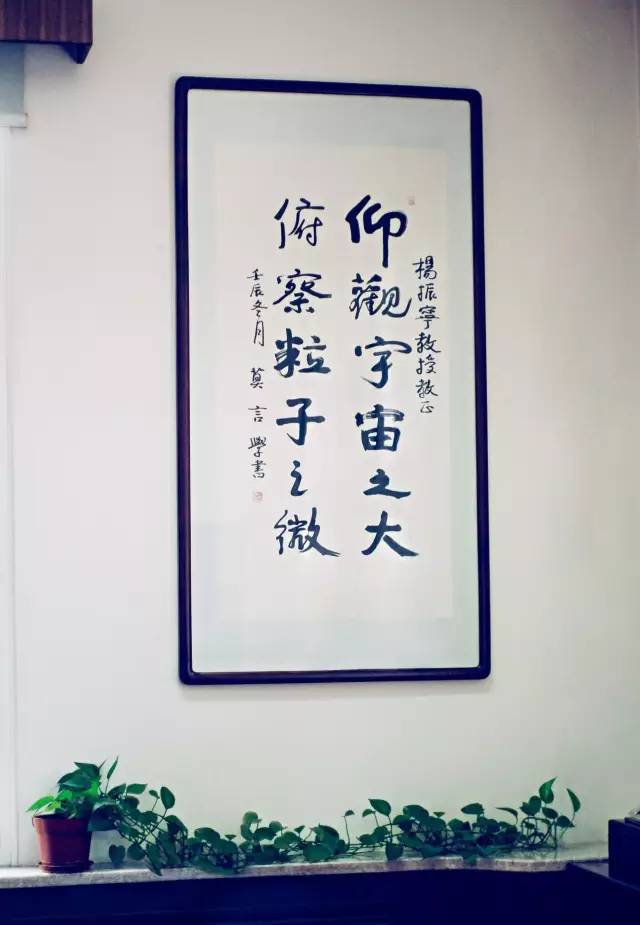 楊振寧教授教正
仰觀宇宙之大
俯察粒子之微
壬辰冬月 莫言 學書